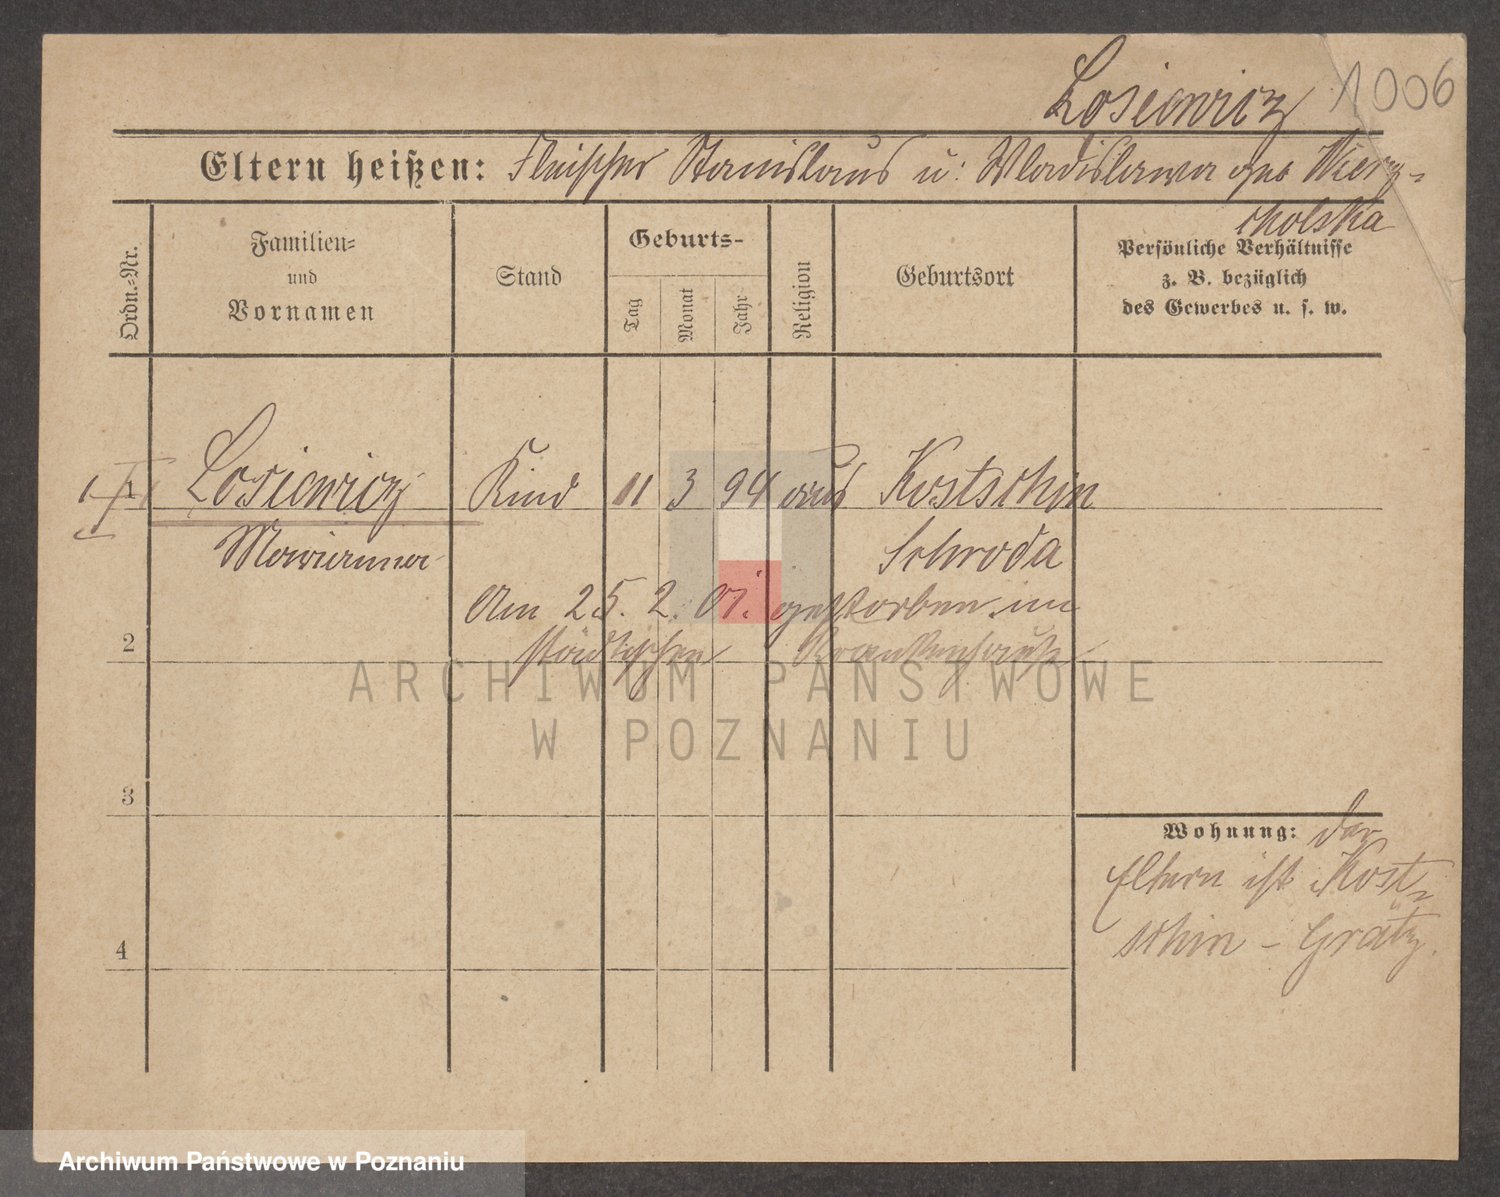 Losiewicz 1006
Eltern heißen: Fleischer Stanislaus u: Wladislawa geb Wierz-
cholska
Ordn.-Nr.
Familien-
und
Vornamen
Stand
Geburts-
Tag
Monat
Jahr
Religion
Geburtsort
Persönliche Verhältnisse
z. B. bezüglich
des Gewerbes u. s. w.
1 Losiewicz Kind 11 3 94 aus Kostschin
Marianna Schroda
Am 25. 2. 01. gestorben im
2 städtischen Krankenhause
ARCHIWUM PAŃSTWOWE
W POZNANIU
3
Wohnung: der
Eltern ist Kost-
schin - Grätz.
4
Archiwum Państwowe w Poznaniu